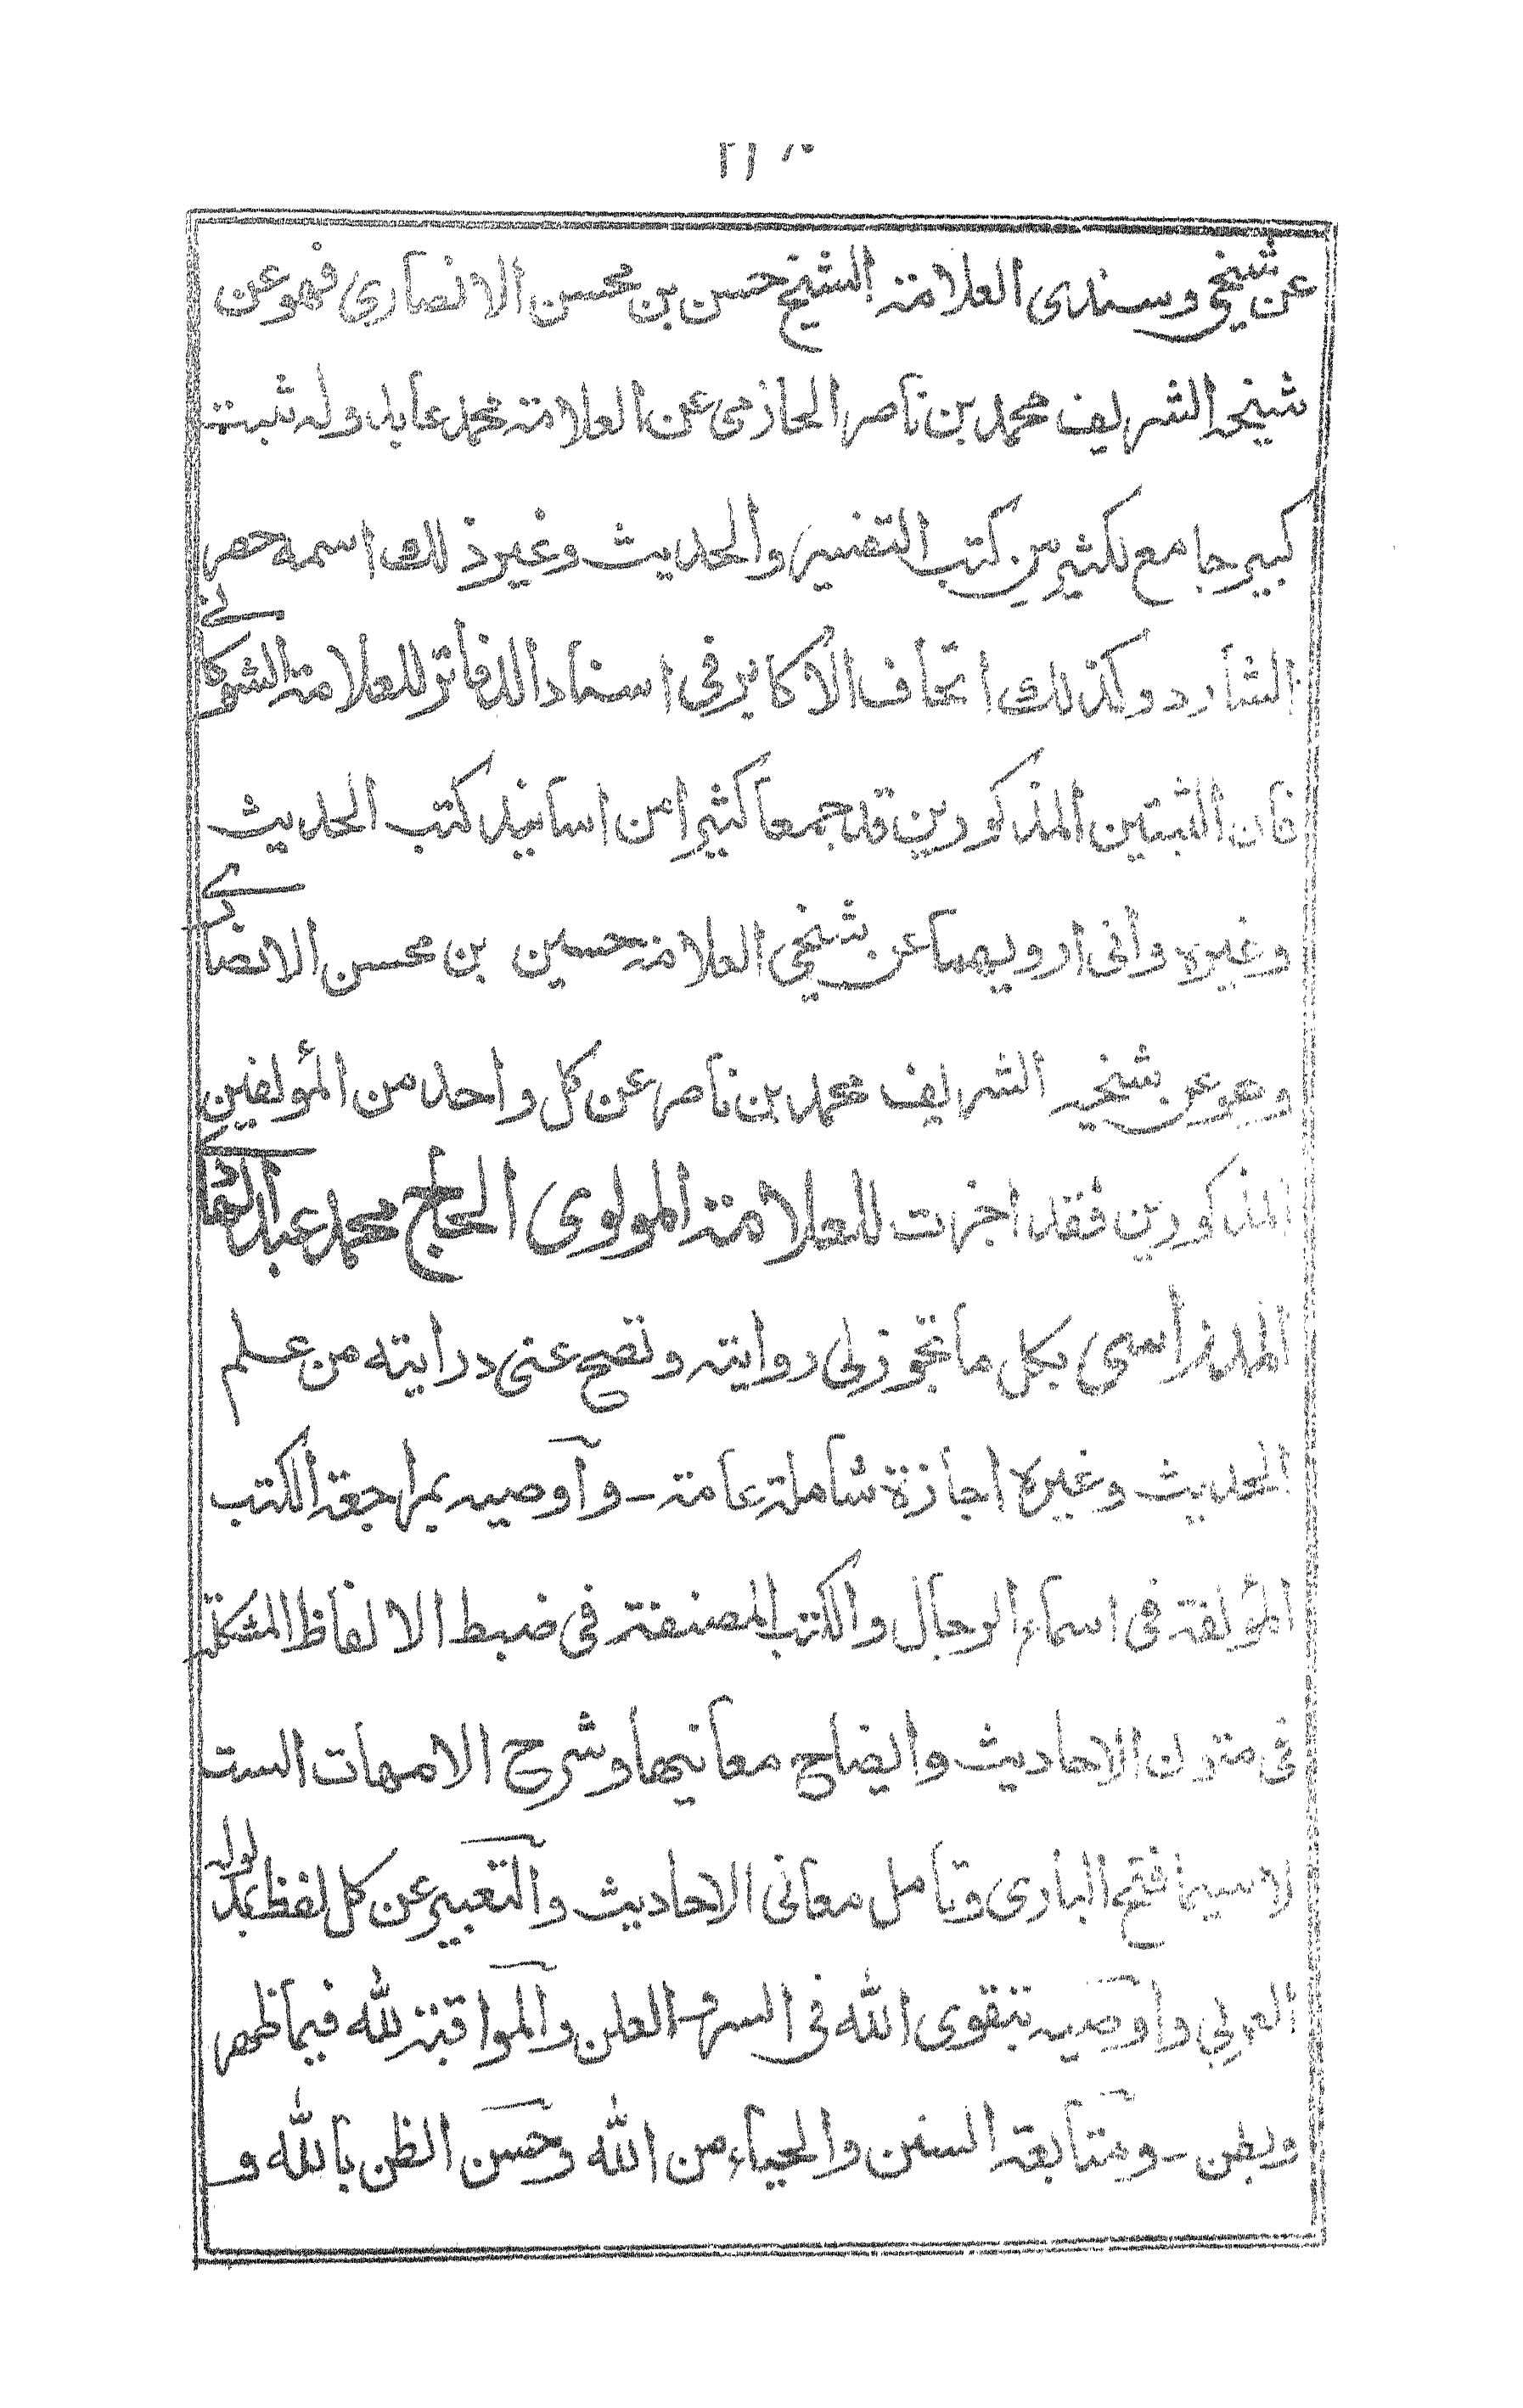 عن شيخي وسندى العلامة الشيخ حسن بن محسن الانصاري فهو عن
شيخه الشريف محمد بن ناصر الحازمى عن العلامة محمد عابد وله ثبت
كبير جامع لكثير من كتب التفسير والحديث وغير ذلك اسمه حصر
الشارد وكذلك اتحاف الأكابر فى اسناد الدفاتر للعلامة الشوكانے
فان الثبتين المذكورين قد جمعا كثيرا من اسانيد كتب الحديث
وغيره وأنى ارويهما عن شيخي العلامة حسين بن محسن الانصارے
وهو عن شيخيه الشريف محمد بن ناصر عن كل واحد من المؤلفين
المذكورين فقد اجزت للعلامة المولوى الحاج محمد عبد
المدراسى بكل ما تجوز لى روايته وتصح عنى درايته من علم
الحديث وغيره اجازة شاملة عامة - وأوصيه بمراجعة الكتب
المؤلفة فى اسماء الرجال والكتب المصنفة فى ضبط الالفاظ المشكلة
فى متون الاحاديث وايضاح معانيها وشرح الامهات الست
لاسيما فتح البارى وتأمل معانى الاحاديث والتعبير عن كل لفظ بمدلوله
العربي وأوصيه بتقوى الله فى السر والعلن والمراقبة لله فيما ظهر
وبطن - ومتابعة السنن والحياء من الله وحسن الظن بالله و